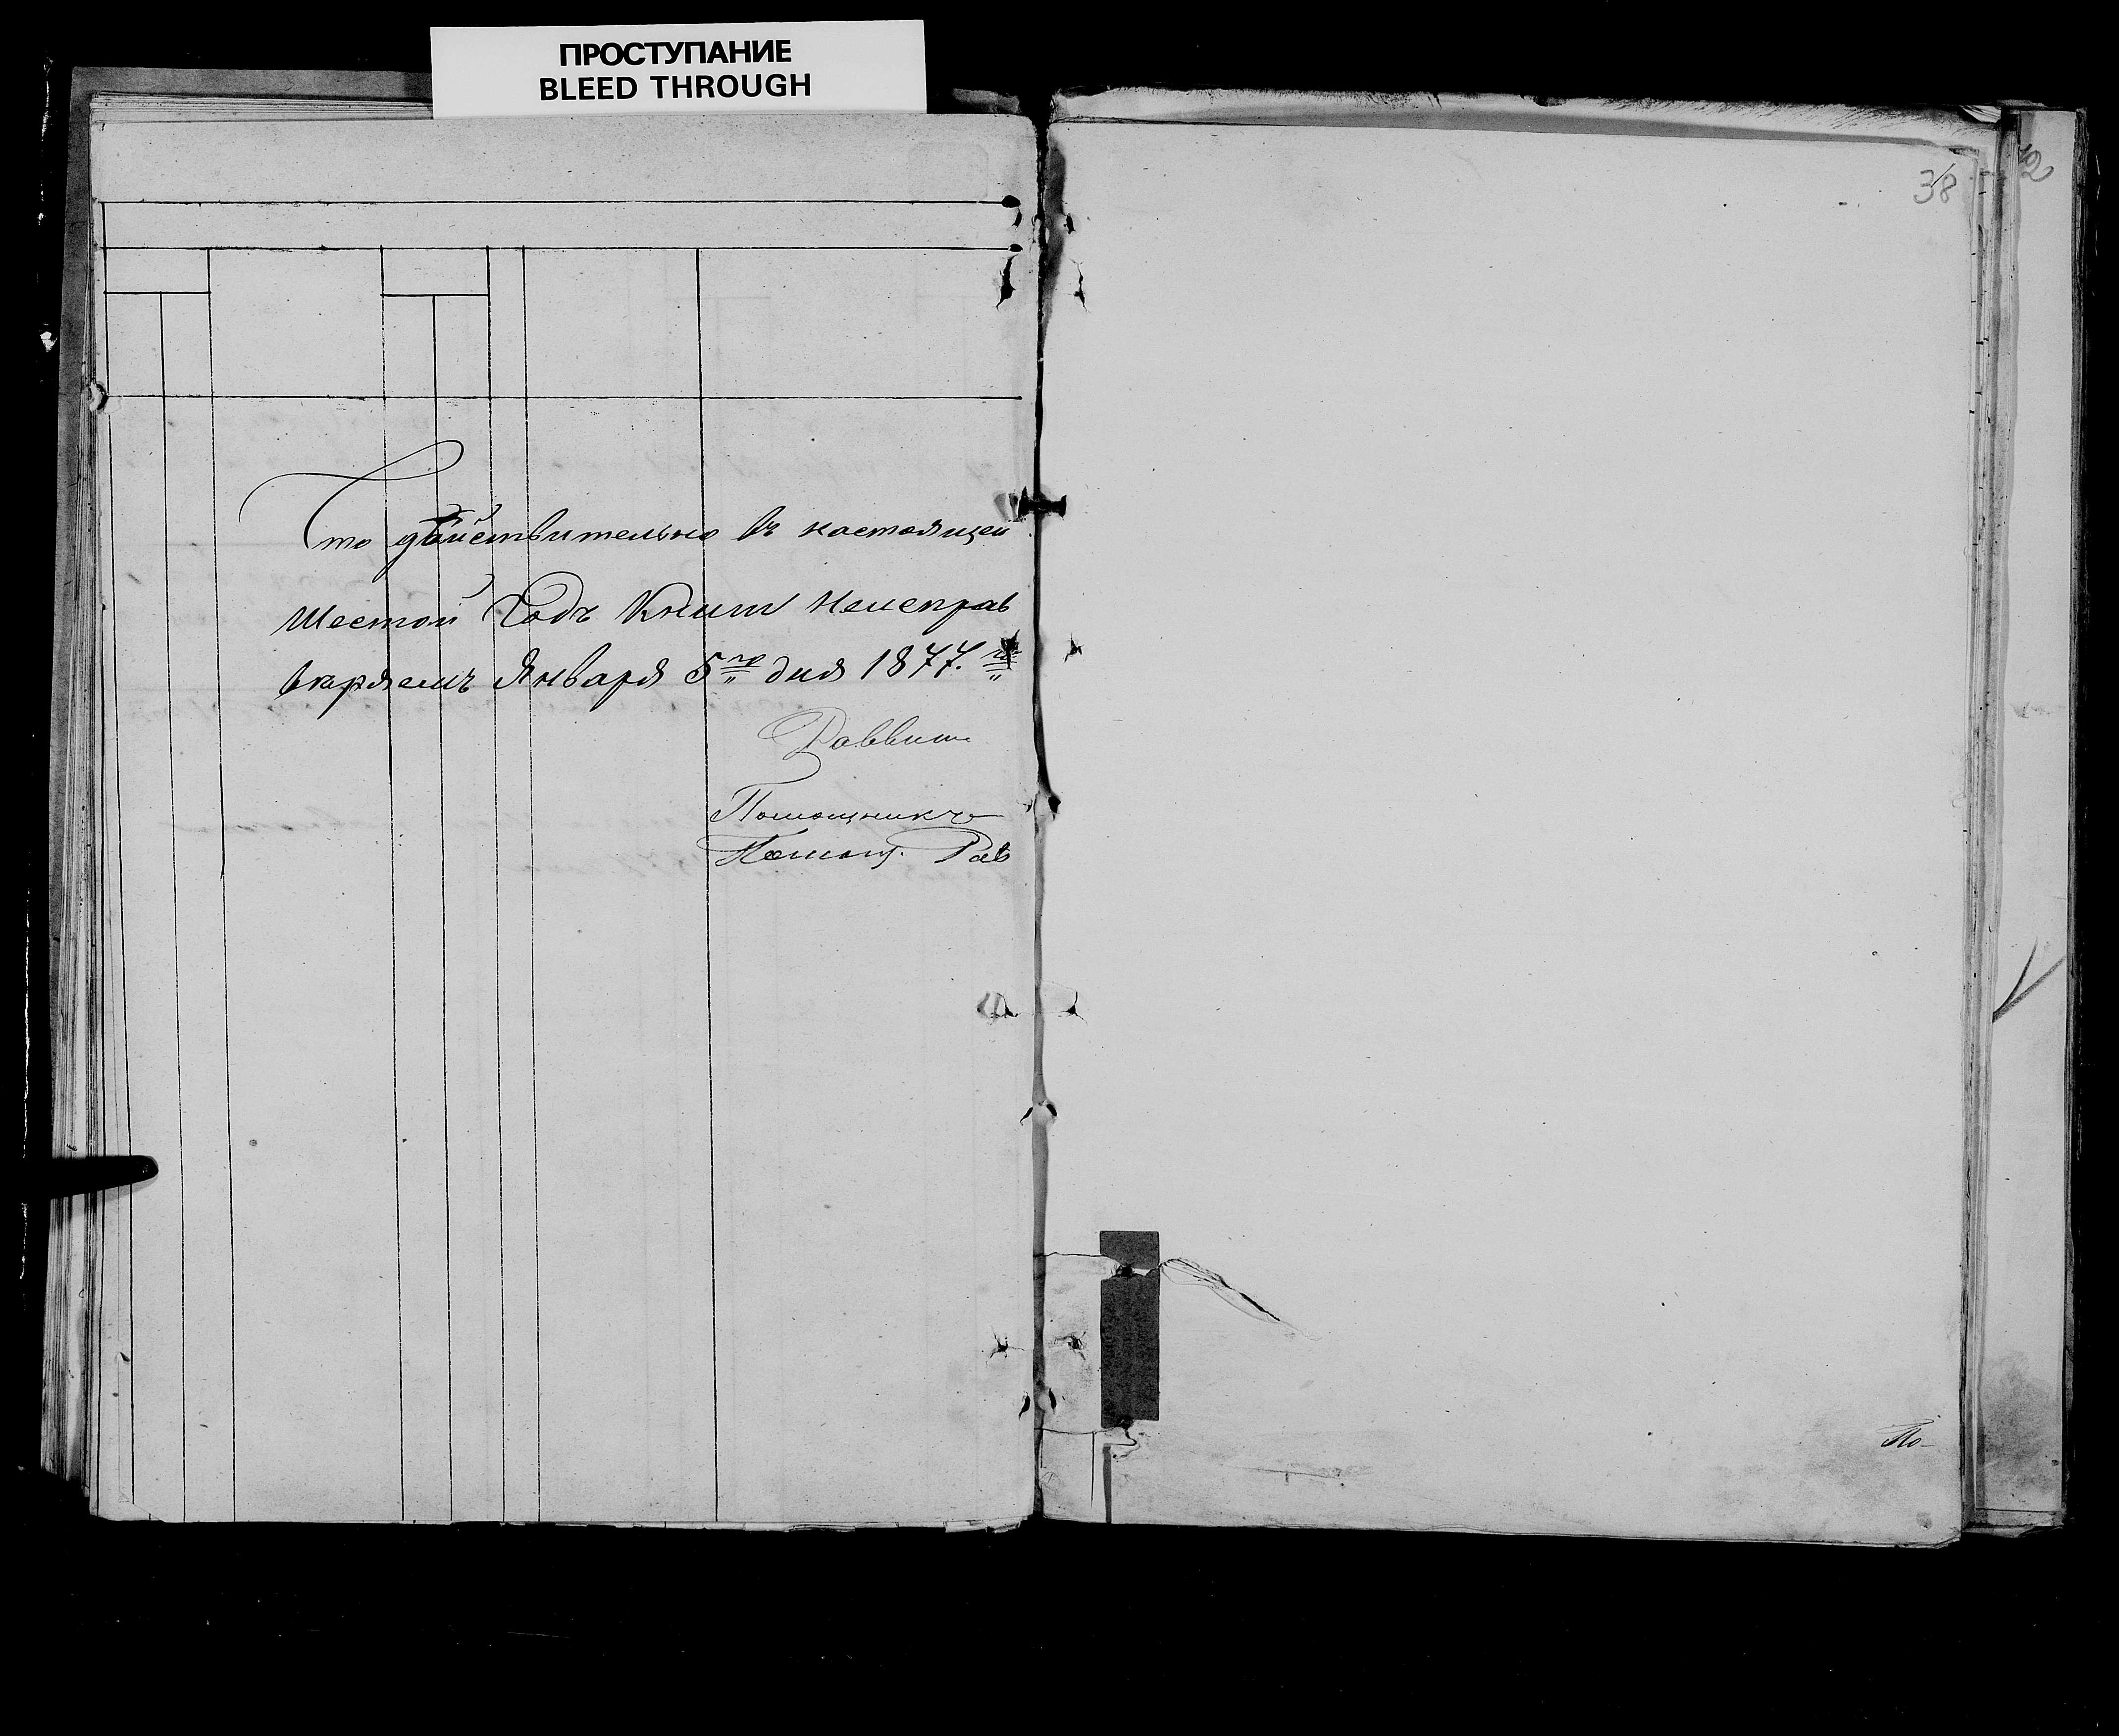 ПРОСТУПАНИЕ
BLEED THROUGH
Что дѣйствительно въ настоящей
Шестой Годъ Книги Неисправ
Января 5го дня 1877.го
Раввин
Помощникъ
Помощ. Рав
38
2
По-